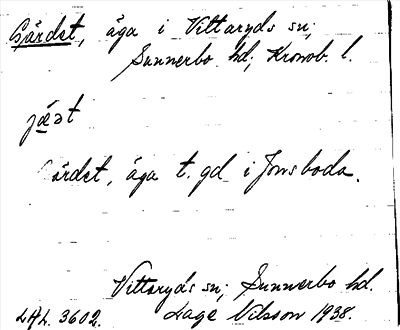 Gärdet, äga i Vittaryds sn;
Sunnerbo hd; Kronob. l.
jæ̱ət
Gärdet, äga t. gd i Jonsboda.
Vittaryds sn; Sunnerbo hd.
LAL. 3602. Lage Nilsson 1938.